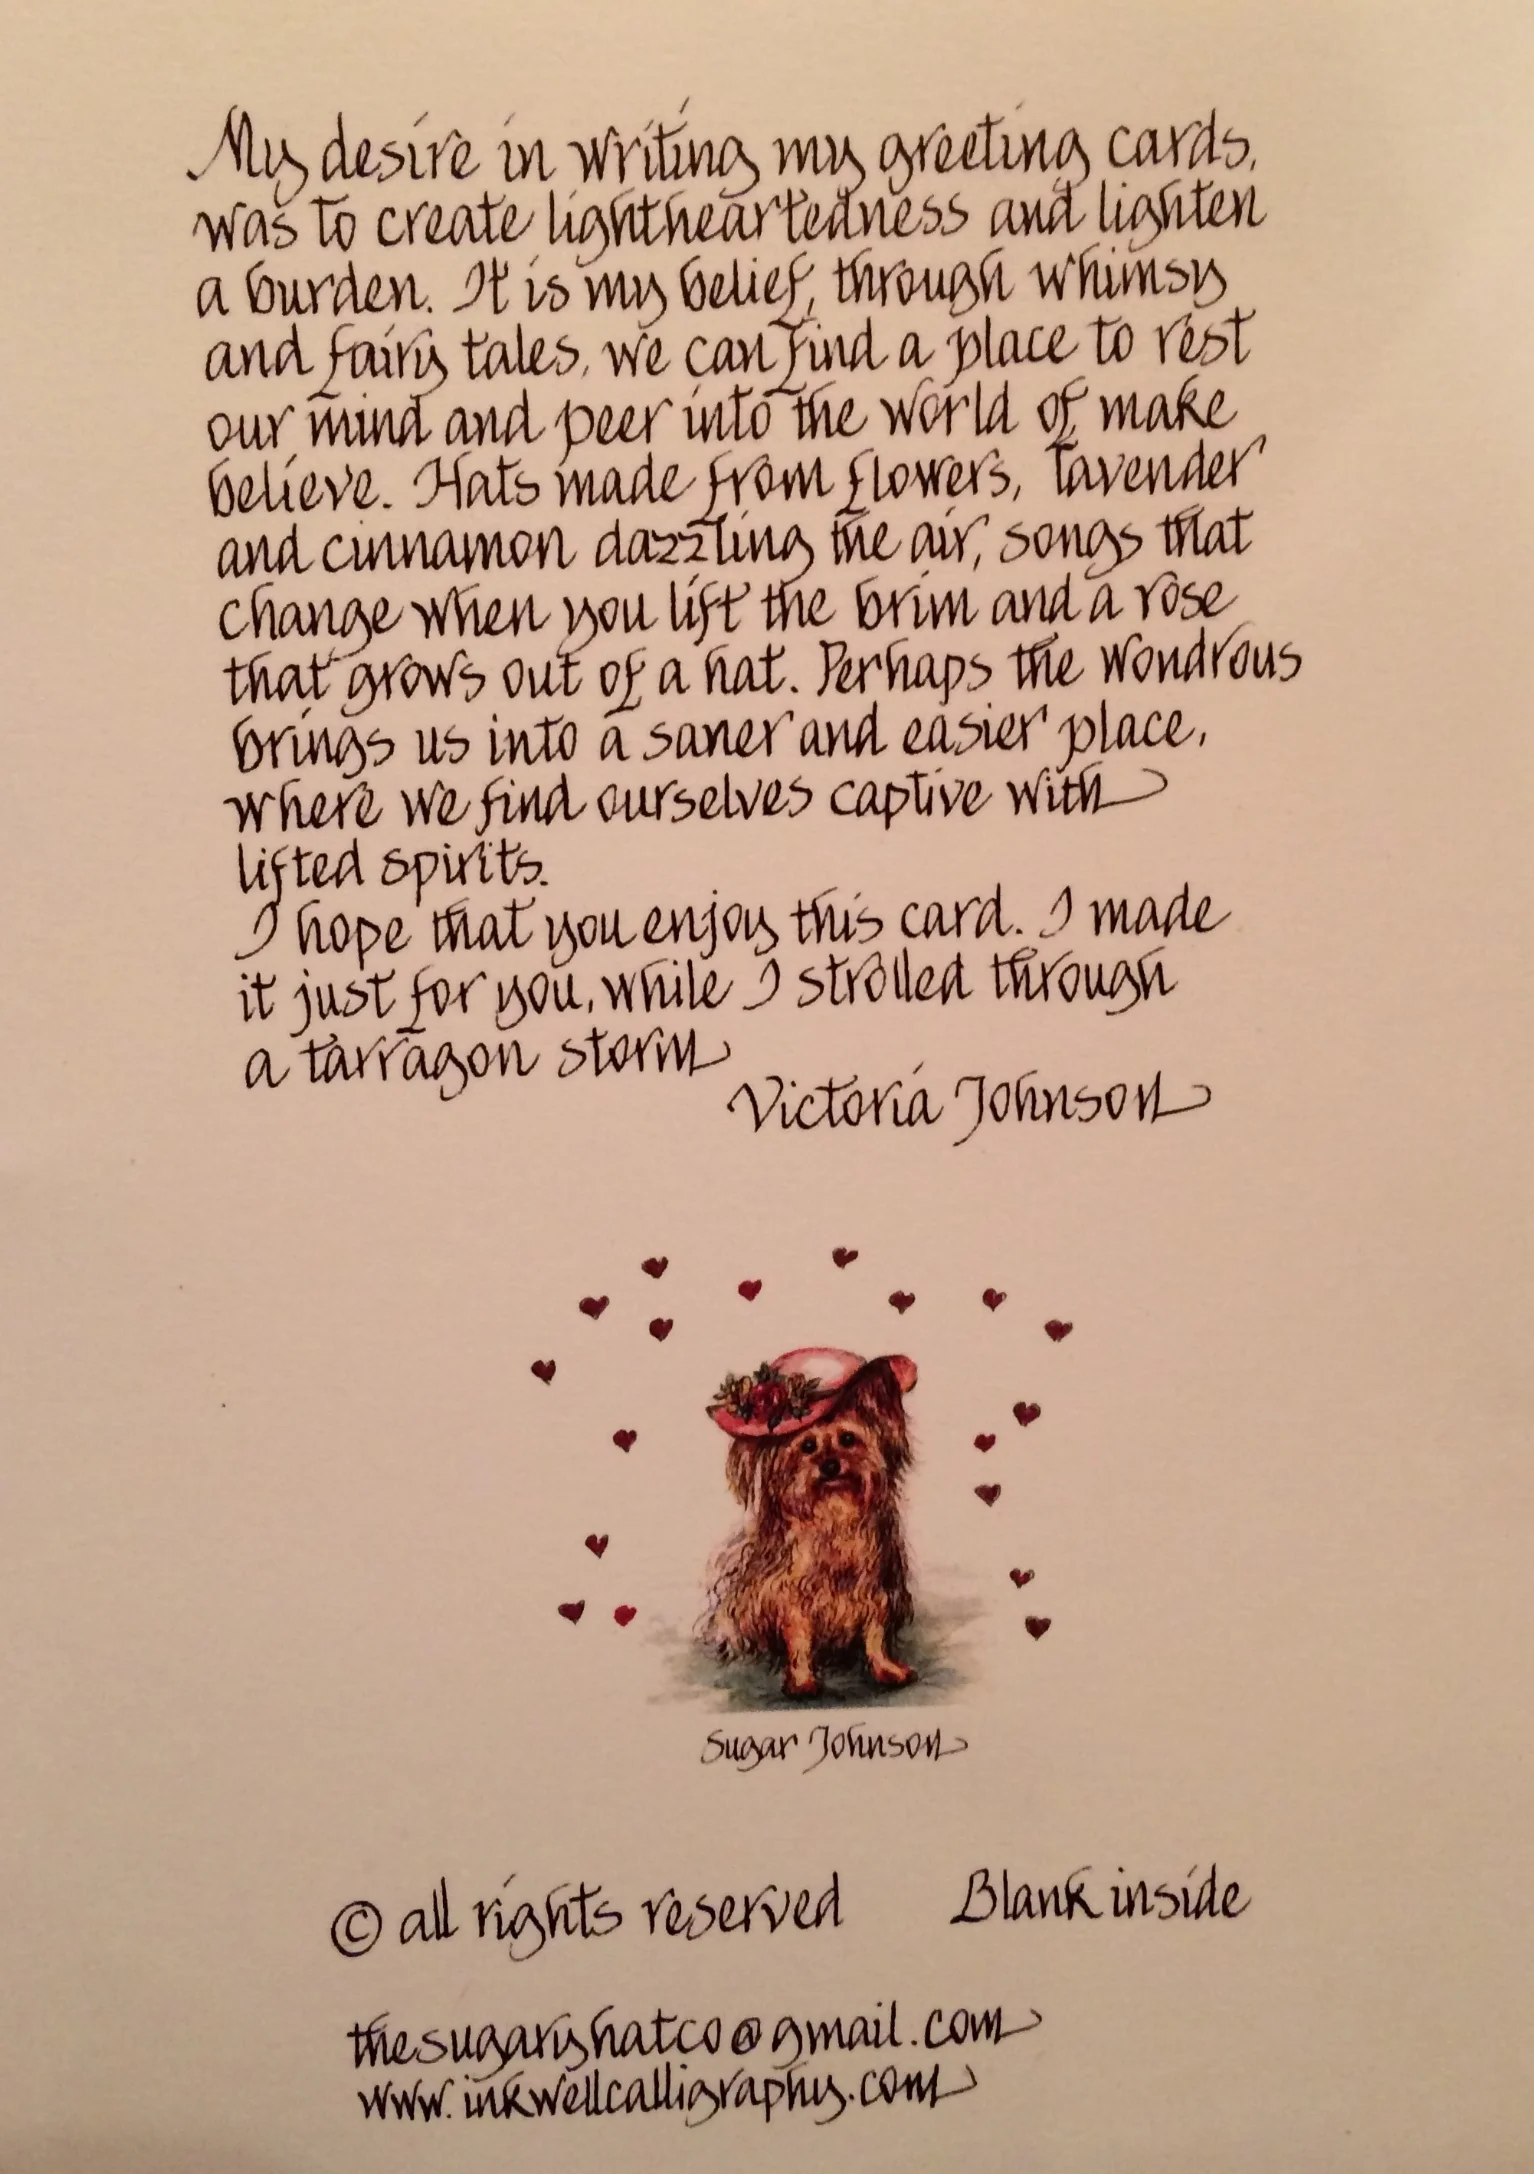 My desire in writing my greeting cards,
was to create lightheartedness and lighten
a burden. It is my belief, through whimsy
and fairy tales, we can find a place to rest
our mind and peer into the world of make
believe. Hats made from flowers, lavender
and cinnamon dazzling the air, songs that
change when you lift the brim and a rose
that grows out of a hat. Perhaps the wondrous
brings us into a saner and easier place,
where we find ourselves captive with
lifted spirits.
I hope that you enjoy this card. I made
it just for you, while I strolled through
a tarragon storm
Victoria Johnson
Sugar Johnson
© all rights reserved Blank inside
thesugaryhatco@gmail.com
www.inkwellcalligraphy.com